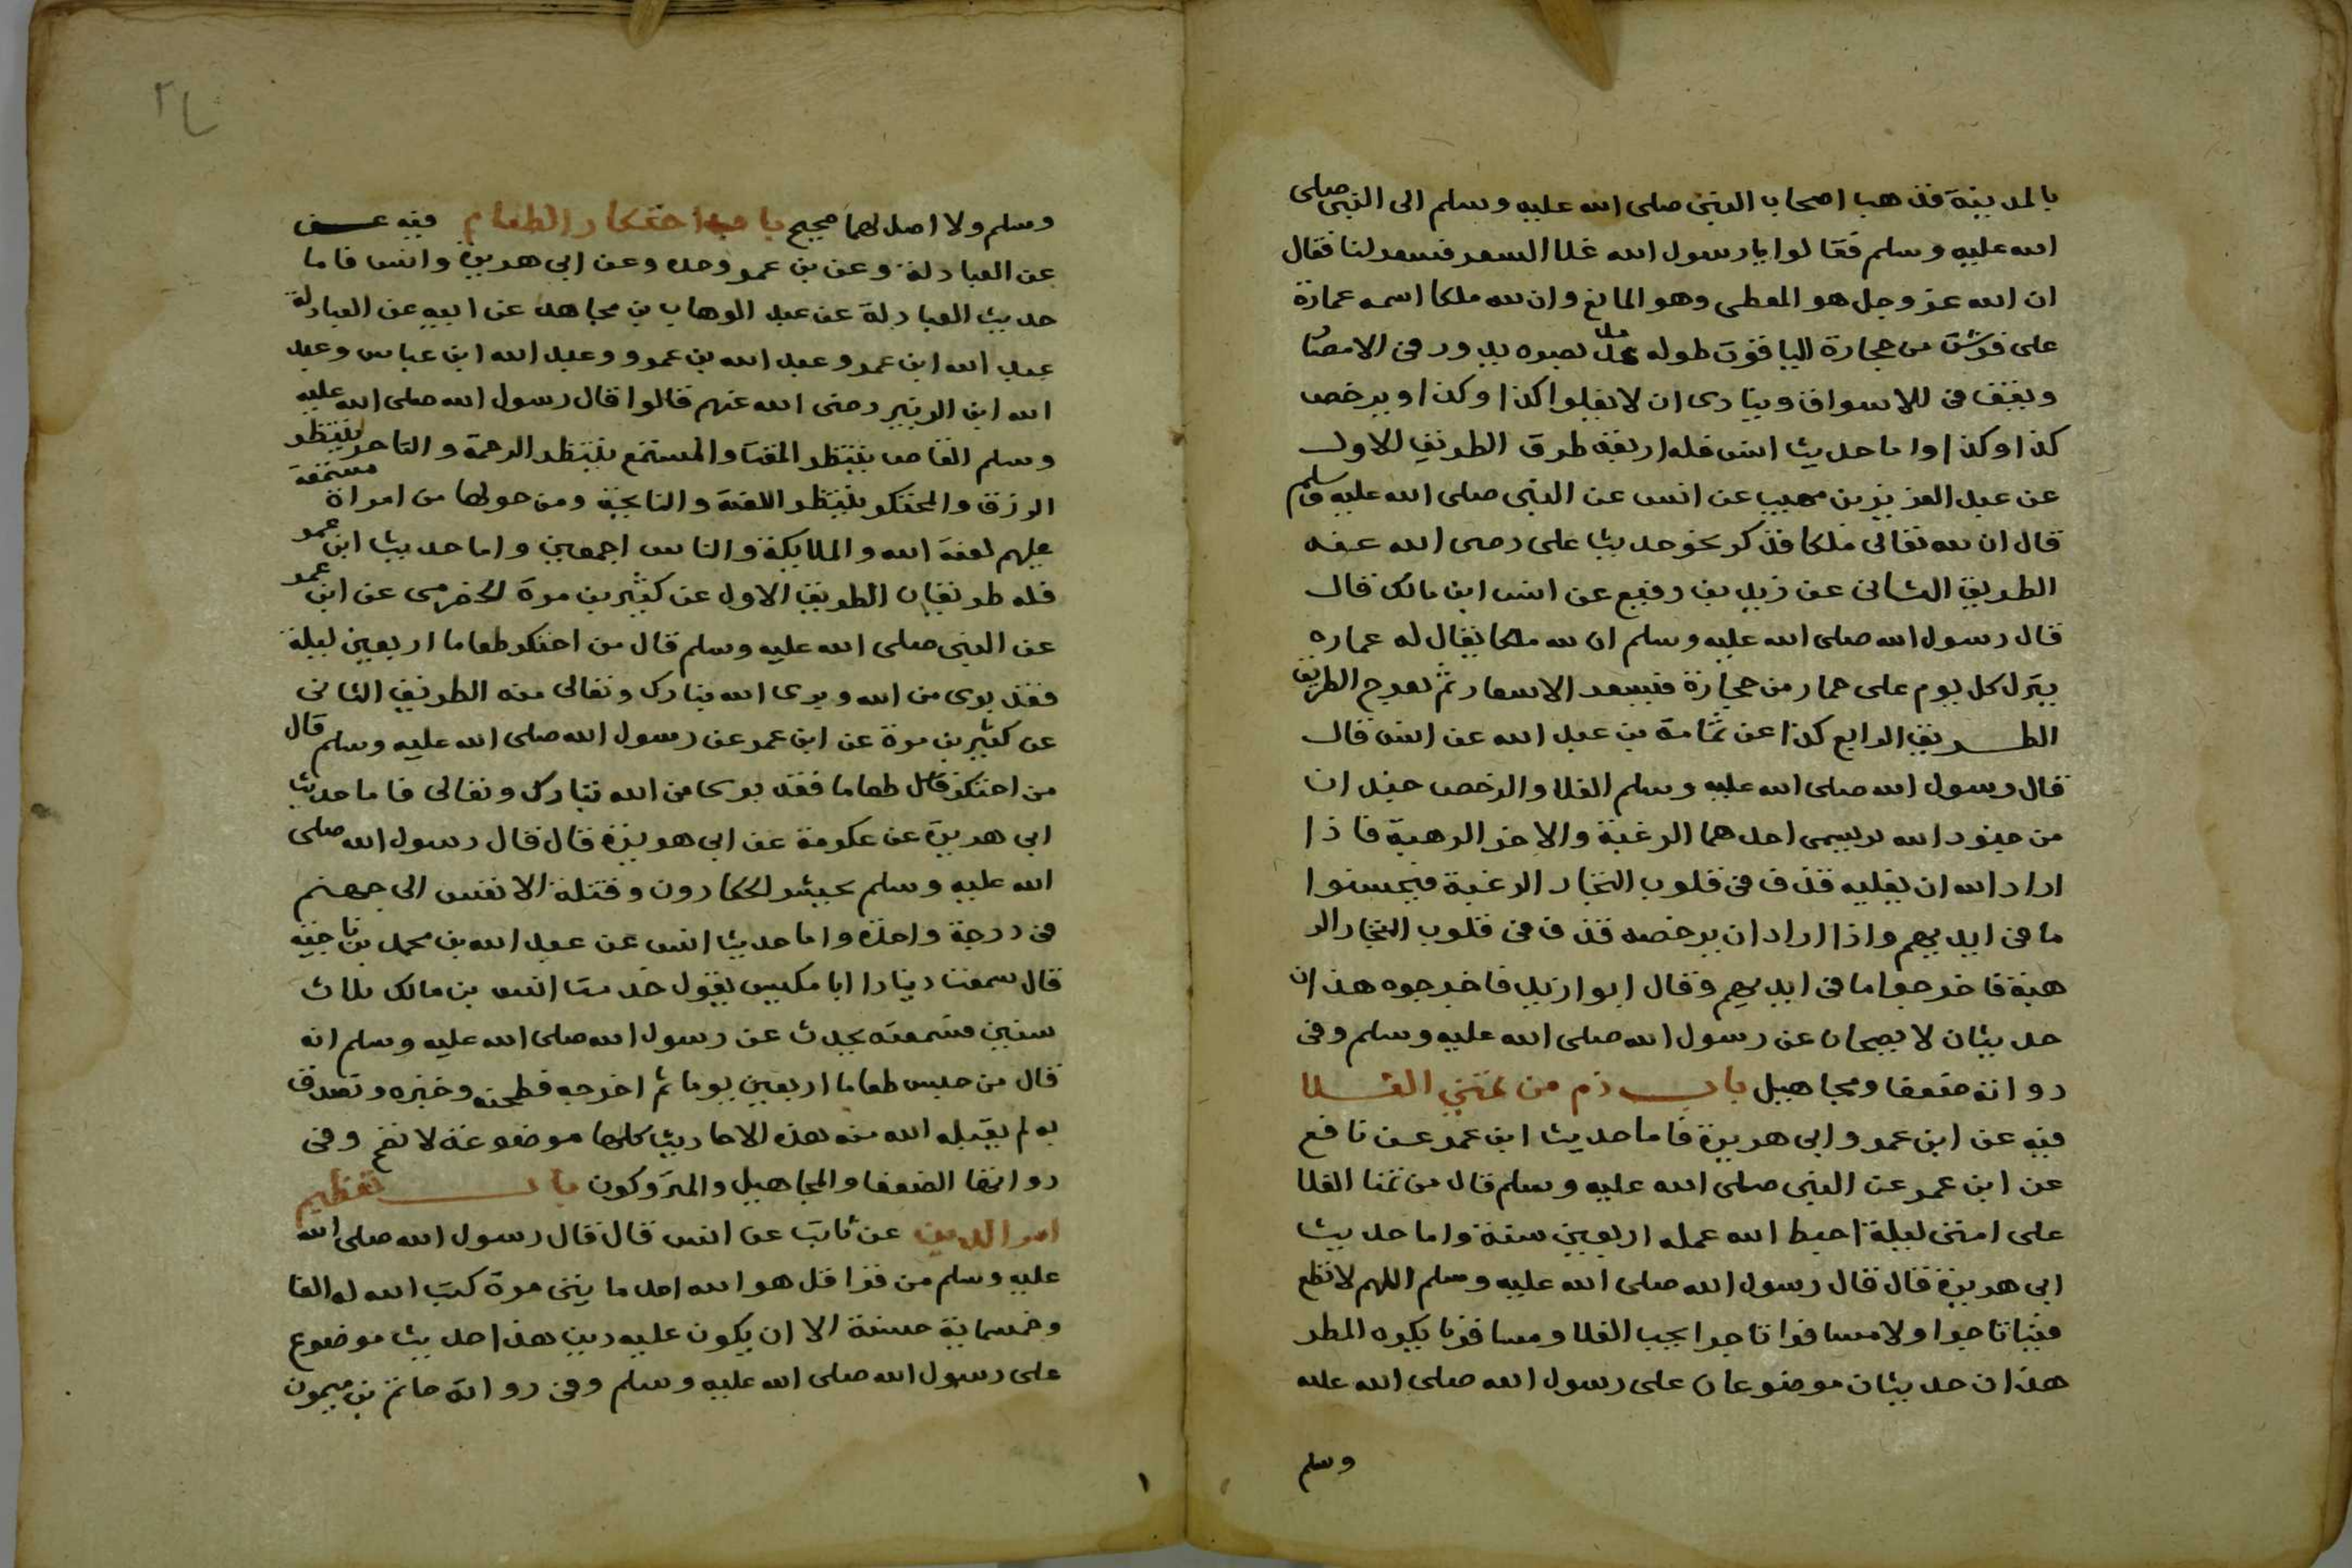 بالمدينة فذهب اصحاب النبي صلى الله عليه وسلم الى النبي صلى
الله عليه وسلم فقالوا يا رسول الله غلا السعر فسعر لنا فقال
ان الله عز وجل هو المعطى وهو المانع وان لله ملكا اسمه عمارة
على فرس من حجارة الياقوت طوله مد بصره يدور في الامصار
ويقف في للاسواق وينادى ان لا يغلوا كذا وكذا ويرخص
كذا وكذا واما حديث انس فله اربعة طرق الطريق الاول
عن عبد العزيز بن صهيب عن انس عن النبي صلى الله عليه وسلم
قال ان لله تعالى ملكا فذكر نحو حديث على رضى الله عنه
الطريق الثانى عن زيد بن رفيع عن انس ابن مالك قال
قال رسول الله صلى الله عليه وسلم ان لله ملكا يقال له عماره
ينزل كل يوم على حمار من حجارة فيسعر الاسعار ثم يعرج الطريق
الطريق الرابع كذا عن ثمامة بن عبد الله عن انس قال
قال رسول الله صلى الله عليه وسلم الغلا والرخص جندان
من جنود الله يسمى احدهما الرغبة والاخر الرهبة فاذا
اراد الله ان يغليه قذف في قلوب التجار الرغبة فيحبسوا
ما في ايديهم واذا اراد ان يرخصه قذف في قلوب التجار الر
هبة فاخرجوا ما في ايديهم وقال ابوا زيد فاخرجوه هذان
حديثان لا يصحان عن رسول الله صلى الله عليه وسلم وفى
رواته ضعفا ومجاهيل باب ذم من تمنى الغلا
فيه عن ابن عمر وابى هريرة فاما حديث ابن عمر عن نافع
عن ابن عمر عن النبي صلى الله عليه وسلم قال من تمنا الغلا
على امتى ليلة احبط الله عمله اربعين سنة واما حديث
ابى هريرة قال قال رسول الله صلى الله عليه وسلم اللهم لا تطع
فينا تاجرا ولا مسافرا تاجرا يحب الغلا ومسافرنا يكره المطر
هذان حديثان موضوعان على رسول الله صلى الله عليه
وسلم
وسلم ولا اصل لهما صحيح باب احتكار الطعام فيه عن
عن العبادلة وعن بن عمر وحده وعن ابى هريرة وانس فاما
حديث العبادلة عن عبد الوهاب بن مجاهد عن ابيه عن العبادلة
عبد الله ابن عمر وعبد الله بن عمرو وعبد الله ابن عباس وعبد
الله ابن الزبير رضى الله عنهم قالوا قال رسول الله صلى الله عليه
وسلم القاص ينتظر المقت والمستمع ينتظر الرحمة والتاجر ينتظر
الرزق والمحتكر ينتظر اللعنة والنايحة ومن حولها من امراة مستمعة
عليهم لعنة الله والملايكة والناس اجمعين واما حديث ابن عمر
فله طريقان الطريق الاول عن كثير بن مرة الحضرمى عن ابن عمر
عن النبي صلى الله عليه وسلم قال من احتكر طعاما اربعين ليلة
فقد برى من الله وبرى الله تبارك وتعالى منه الطريق الثانى
عن كثير بن مرة عن ابن عمر عن رسول الله صلى الله عليه وسلم قال
من احتكر طعاما فقد برى من الله تبارك وتعالى فاما حديث
ابى هريرة عن عكرمة عن ابى هريرة قال قال رسول الله صلى
الله عليه وسلم يحشر الحكارون وقتلة الانفس الى جهنم
في درجة واحدة واما حديث انس عن عبد الله بن محمد بن ناجية
قال سمعت دينارا ابا مكيس يقول خدمت انس بن مالك ثلاث
سنين فسمعته يحدث عن رسول الله صلى الله عليه وسلم انه
قال من حبس طعاما اربعين يوما ثم اخرجه فطحنه وخبزه وتصدق
به لم يقبله الله منه هذه الاحاديث كلها موضوعة لا تصح وفى
رواتها الضعفا والمجاهيل والمتروكون باب تعظيم
امر الدين عن ثابت عن انس قال قال رسول الله صلى الله
عليه وسلم من قرا قل هو الله احد مايتى مرة كتب الله له الفا
وخمسماية حسنة الا ان يكون عليه دين هذا حديث موضوع
على رسول الله صلى الله عليه وسلم وفى رواته حاتم بن ميمون